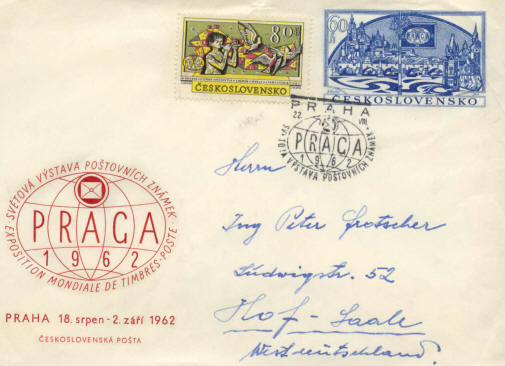 80h
ČESKOSLOVENSKO
60h
ČESKOSLOVENSKO
PRAHA
22. VIII.
SVĚTOVÁ VÝSTAVA POŠTOVNÍCH ZNÁMEK
PRAGA
1962
SVĚTOVÁ VÝSTAVA POŠTOVNÍCH ZNÁMEK
PRAGA
1962
EXPOSITION MONDIALE DE TIMBRES-POSTE
PRAHA 18. srpen - 2. září 1962
ČESKOSLOVENSKÁ POŠTA
Herrn
Ing Peter Grotscher
Ludwigstr. 52
Hof-Saale
Westdeutschland